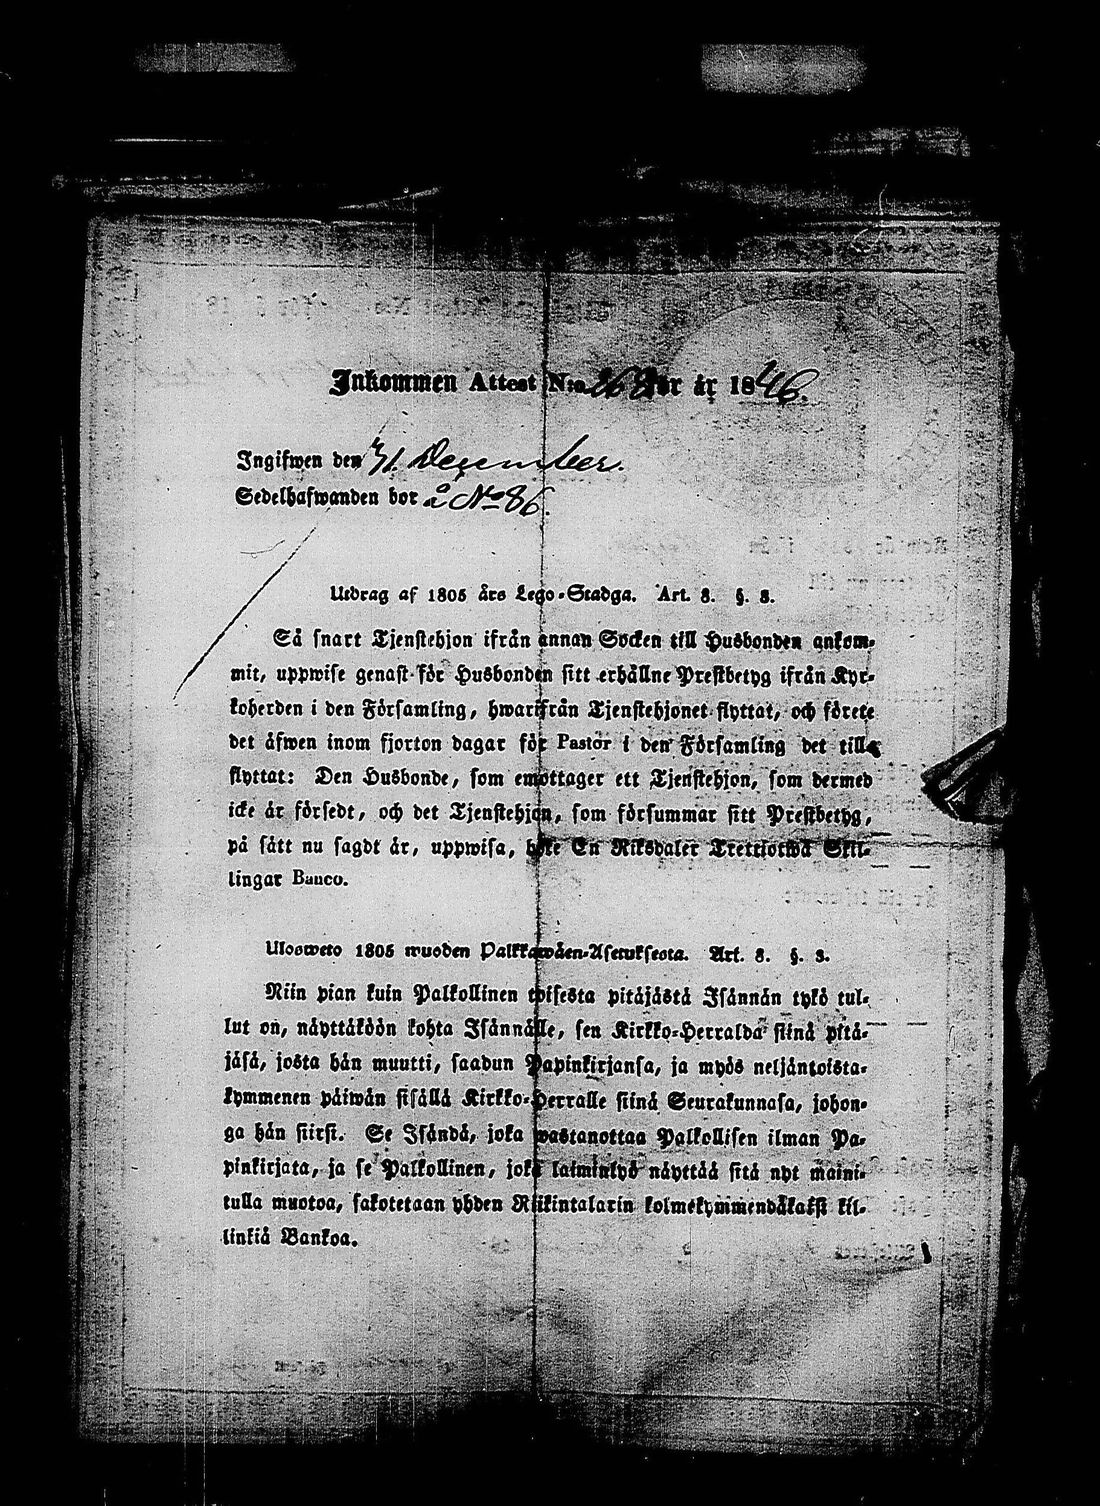 Inkommen Attest N:o 268 för år 1846.
Ingifwen den 31 December.
Sedelhafwanden bor å No 86.
Utdrag af 1805 års Lego-Stadga. Art. 8. §. 8.
Så snart Tjenstehjon ifrån annan Socken till Husbonden ankom-
mit, uppwise genast för Husbonden sitt erhållne Prestbetyg ifrån Kyr-
koherden i den Församling, hwarifrån Tjenstehjonet flyttat, och förete
det äfwen inom fjorton dagar för Pastor i den Församling det till
flyttat: Den Husbonde, som emottager ett Tjenstehjon, som dermed
icke är försedt, och det Tjenstehjon, som försummar sitt Prestbetyg,
på sätt nu sagdt är, uppwisa, böte En Riksdaler Trettiotwå Skil-
lingar Banco.
Ulosweto 1805 wuoden Palkkawäen-Asetuksesta. Art. 8. §. 8.
Niin pian kuin Palkollinen toisesta pitäjästä Isännän tykö tul-
lut on, näyttäköön kohta Isännälle, sen Kirkko-Herralda siinä pitä-
jäsä, josta hän muutti, saadun Papinkirjansa, ja myös neljäntoista-
kymmenen päiwän sisällä Kirkko-Herralle siinä Seurakunnasa, johon-
ga hän siirsi. Se Isändä, joka wastanottaa Palkollisen ilman Pa-
pinkirjata, ja se Palkollinen, joka laiminlyö näyttää sitä nyt maini-
tulla muotoa, sakotetaan yhden Riikintalarin kolmekymmendäkaksi kil-
linkiä Bankoa.